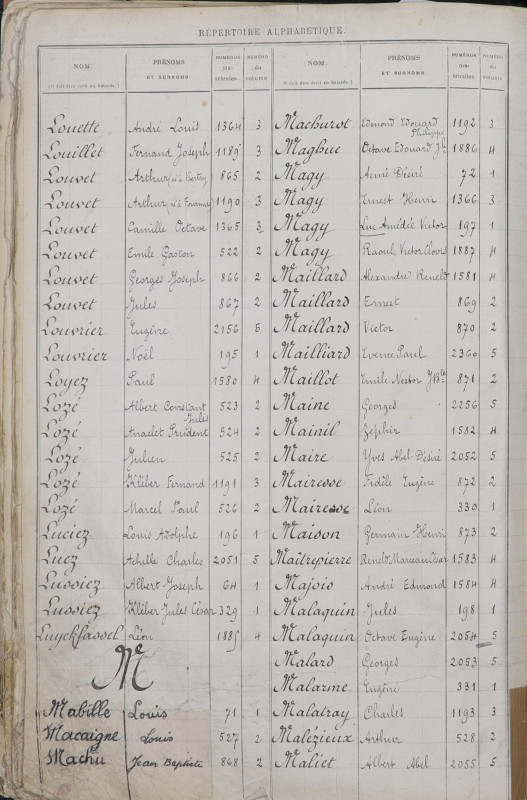 RÉPERTOIRE ALPHABÉTIQUE.
NOM. PRÉNOMS ET SURNOMS NUMÉROS matricules. NUMÉRO du volume
(Il doit être écrit en bâtarde.)
Louette André Louis 1364 3
Louillet Fernand Joseph 1189 3
Louvet Arthur (né à 865 2
Louvet Arthur (né à 1190 3
Louvet Camille Octave 1365 3
Louvet Emile Gaston 522 2
Louvet Georges Joseph 866 2
Louvet Jules 867 2
Louvrier Eugène 2156 5
Louvrier Noël 195 1
Loyez Paul 1580 4
Lozé Albert Constant Jules 523 2
Lozé Anaclet Prudent 524 2
Lozé Julien 525 2
Lozé Kléber Fernand 1191 3
Lozé Marcel Paul 526 2
Luciez Louis Adolphe 196 1
Luez Achille Charles 2051 5
Lussiez Albert Joseph 64 1
Lussiez Kléber Jules César 329 1
Luyckfassel Léon 1885 4
M
Mabille Louis 71 1
Macaigne Louis 527 2
Machu Jean Baptiste 868 2
NOM. PRÉNOMS ET SURNOMS NUMÉROS matricules. NUMÉRO du volume
(Il doit être écrit en bâtarde.)
Machurot Edmond Edouard Philippe 1192 3
Maghue Octave Edouard Jh 1886 4
Magy Aimé Désiré 72 1
Magy Ernest Henri 1366 3
Magy Luc Amédée Victor 197 1
Magy Raoul Victor Clovis 1887 4
Maillard Alexandre René 1581 4
Maillard Ernest 869 2
Maillard Victor 870 2
Mailliard Paul 2360 5
Maillot Emile Nestor JBte 871 2
Maine Georges 2256 5
Mainil Zéphir 1582 4
Maire Yves Abel Désiré 2052 5
Mairesse Fidèle Eugène 872 2
Mairesse Léon 330 1
Maison Germain Henri 873 2
Maîtrepierre René Marceau César 1583 4
Majois André Edmond 1584 4
Malaquin Jules 198 1
Malaquin Octave Eugène 2054 5
Malard Georges 2053 5
Malarme Eugène 331 1
Malatray Charles 1193 3
Malézieux Arthur 528 2
Maliet Albert Abel 2055 5